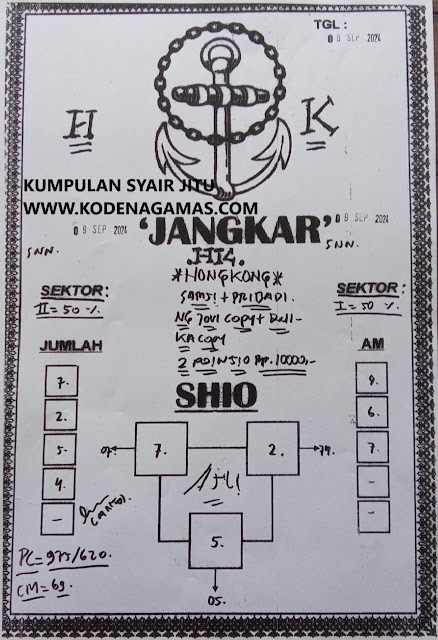 TGL :
0 9 SEP 2024
H K
KUMPULAN SYAIR JITU
WWW.KODENAGAMAS.COM
0 9 SEP 2024
0 9 SEP 2024
'JANGKAR'
SNN.
SNN.
HK.
*HONGKONG*
SEKTOR:
II=50 %.
SEKTOR:
I=50 %.
+ PRIBADI.
COPY+
KA COPY
2 POIN 5 10 Rp. 10000,-
JUMLAH
AM
SHIO
7.
2.
5.
4.
-
9.
6.
7.
-
-
07.
7.
2.
74.
5.
05.
PC=975/620.
CM=69.